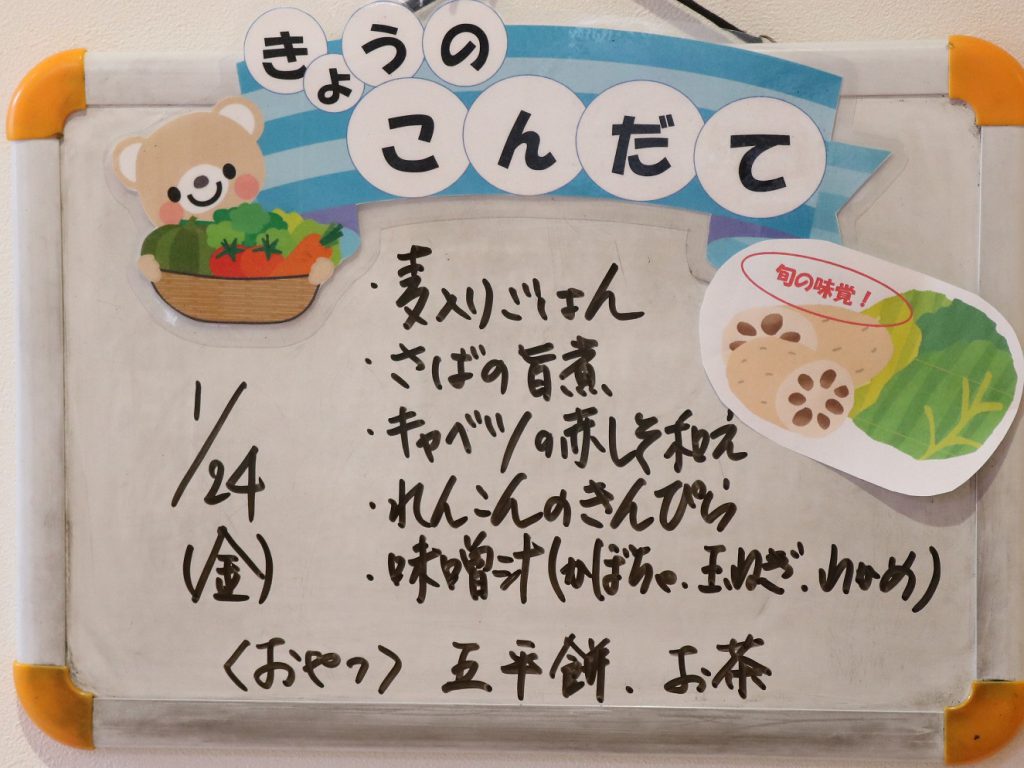 きょうの
こんだて
旬の味覚！
・麦入りごはん
・さばの旨煮
・キャベツの赤しそ和え
1/24
・れんこんのきんぴら
(金)
・味噌汁(かぼちゃ、玉ねぎ、わかめ)
〈おやつ〉 五平餅、お茶